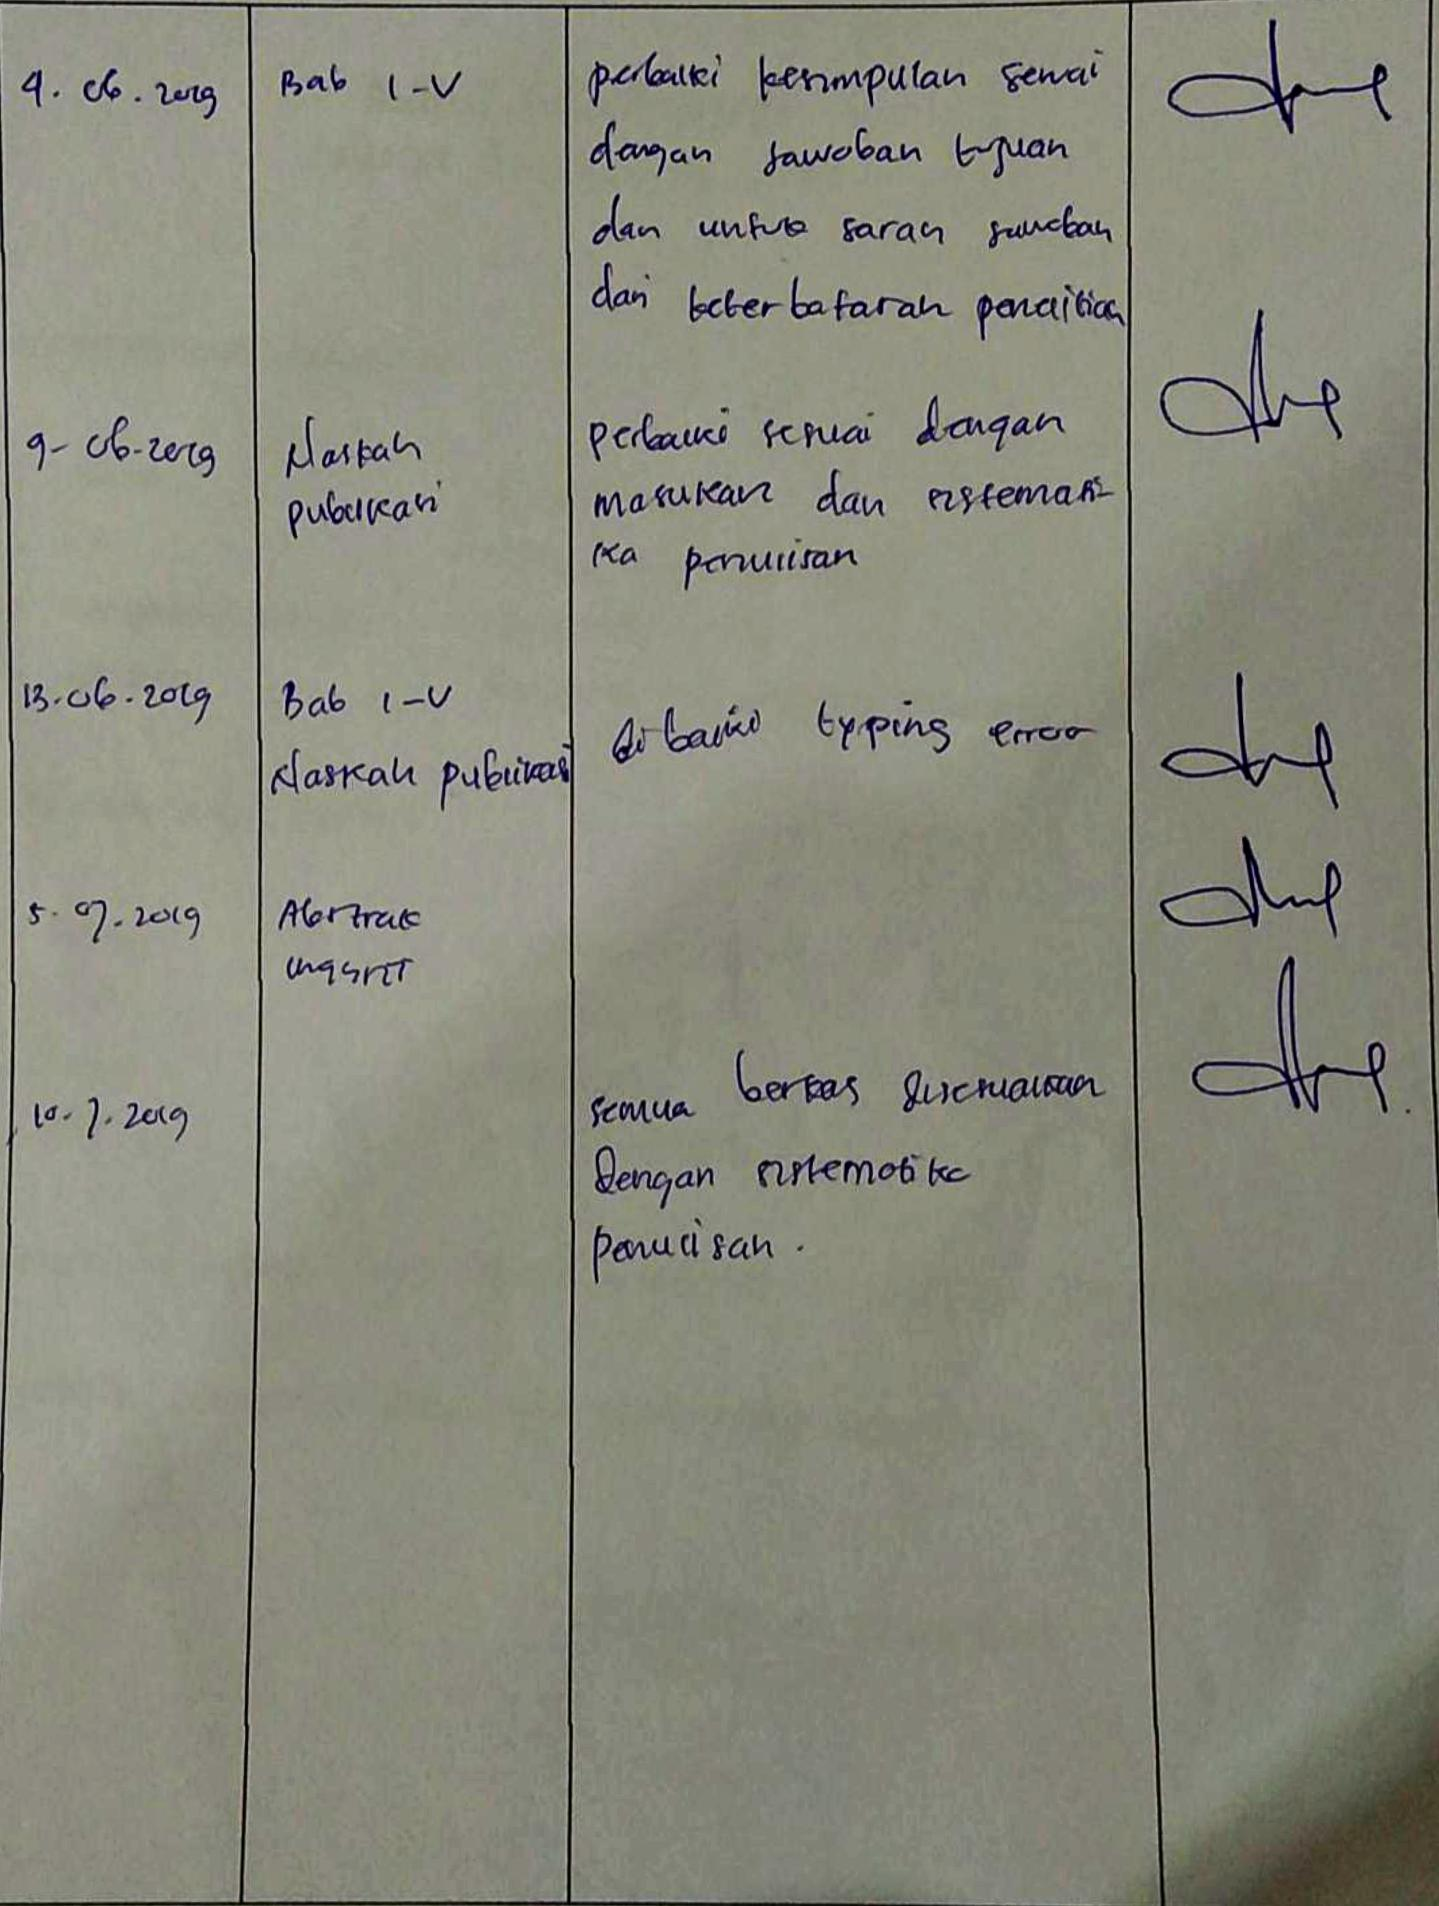 4. 06. 2019
Bab I-V
perbaiki kesimpulan sesuai
dengan jawaban tujuan
dan untuk saran jawaban
dari keterbatasan penelitian
9-06-2019
Naskah
publikasi
perbaiki sesuai dengan
masukan dan sistemati-
ka penulisan
13.06.2019
Bab I-V
Naskah publikasi
dibaiki typing error
5.07.2019
Abstrak
inggris
10.7.2019
semua berkas disesuaikan
dengan sistematika
penulisan.